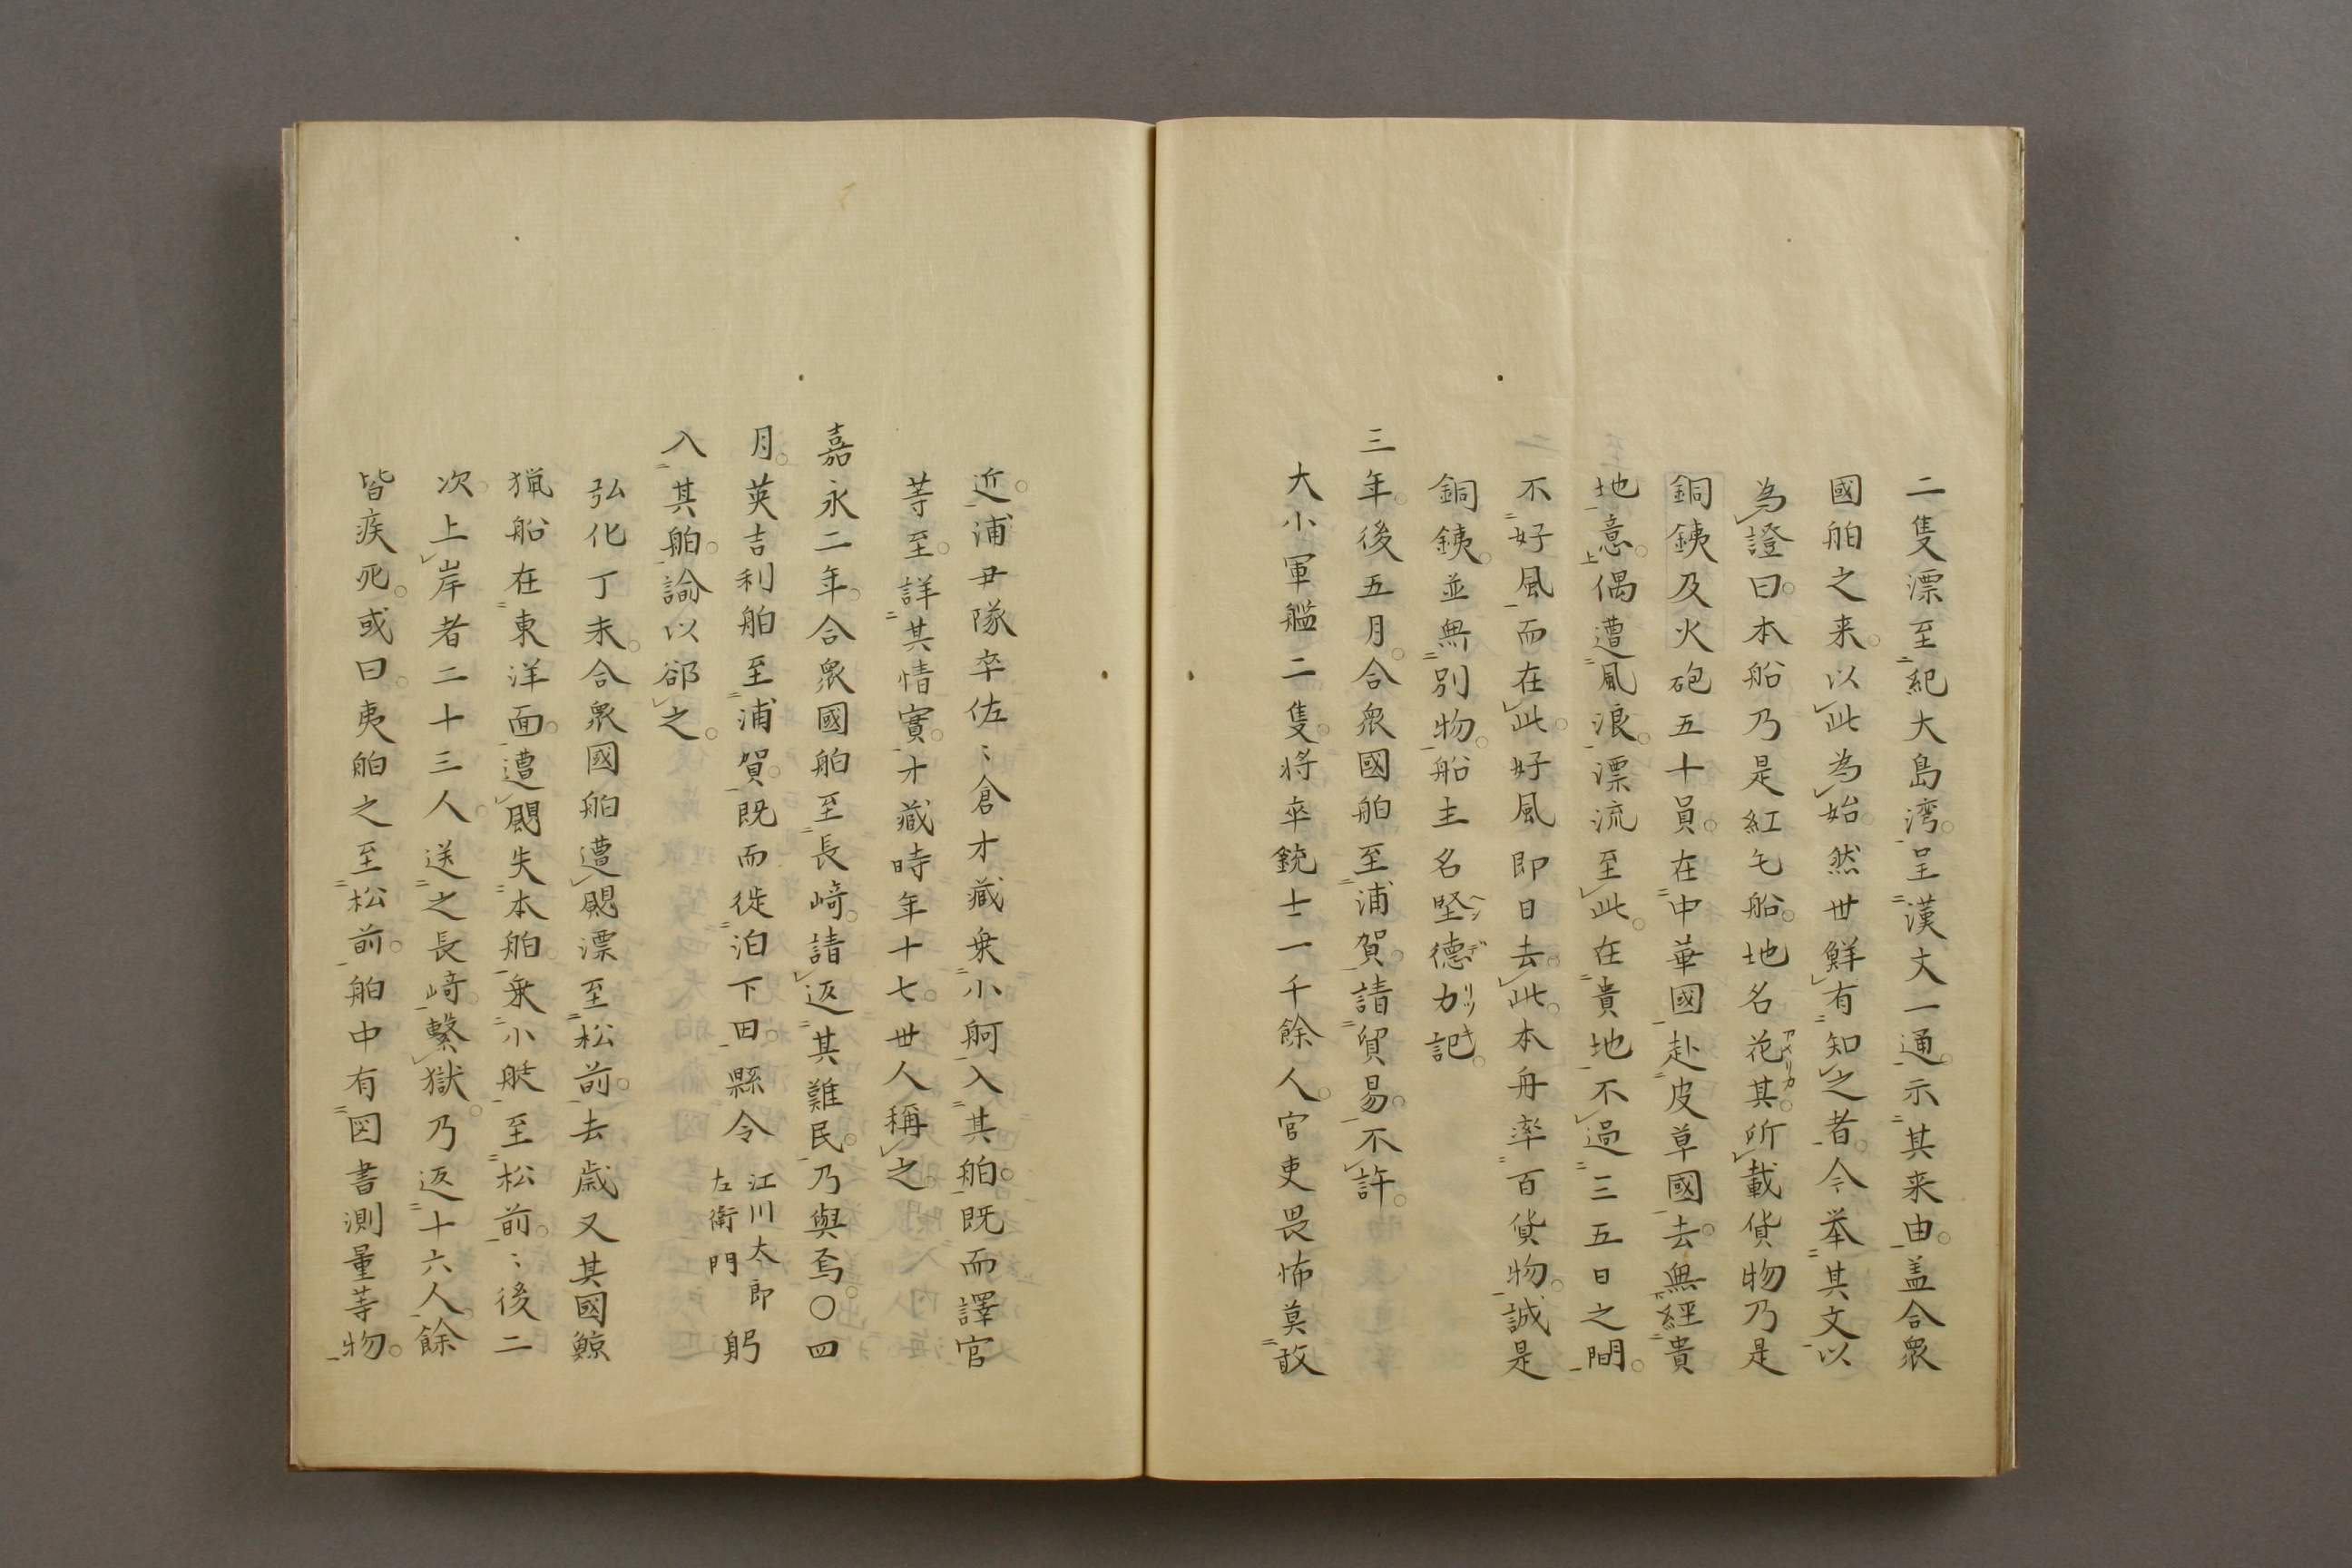 二隻漂至紀大島湾。呈漢文一通。示其来由。盖合衆
國舶之来。以此為始。然丗鮮有知之者。今举其文以
為證曰。本船乃是紅毛船。地名花其。所載貨物乃是
銅銕及火砲五十員。在中華國赴皮草國去。無經貴
地意。偶遭風浪。漂流至此。在貴地不過三五日之間。
不好風而在此。好風即日去此。本舟率百貨物。誠是
銅銕。並無別物。船主名堅德力記。
三年。後五月。合衆國舶至浦賀。請貿易。不許。
大小軍艦二隻。將卒銃士一千餘人。官吏畏怖莫敢
近。浦尹隊卒佐〻倉才藏乗小舸入其舶。既而譯官
等至。詳其情實。才藏時年十七。丗人稱之。
嘉永二年。合衆國舶至長﨑。請返其難民。乃與焉。〇四
月。英吉利舶至浦賀。既而徙泊下田。縣令江川太郎左衛門躬
入其舶。諭以郤之。
弘化丁未。合衆國舶遭颶漂至松前。去歳又其國鯨
猟船在東洋面。遭颶失本舶。乗小艇至松前。〻後二
次。上岸者二十三人。送之長﨑。繫獄。乃返十六人。餘
皆疾死。或曰。夷舶之至松前。舶中有図書測量等物。